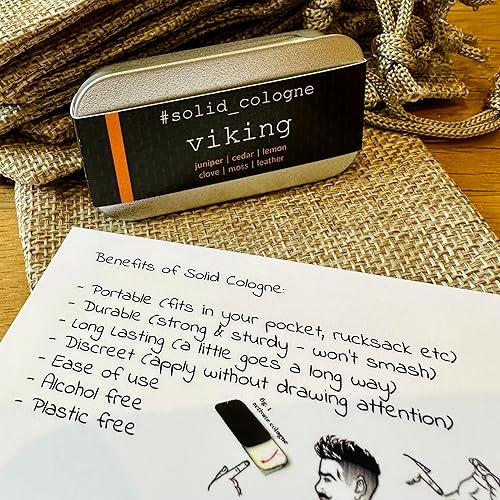 #solid_cologne
viking
juniper | cedar | lemon
clove | moss | leather
Benefits of Solid Cologne:
- Portable (fits in your pocket, rucksack etc)
- Durable (strong & sturdy - won't smash)
- Long Lasting (a little goes a long way)
- Discreet (apply without drawing attention)
- Ease of use
- Alcohol free
- Plastic free
fig. 1
activate cologne